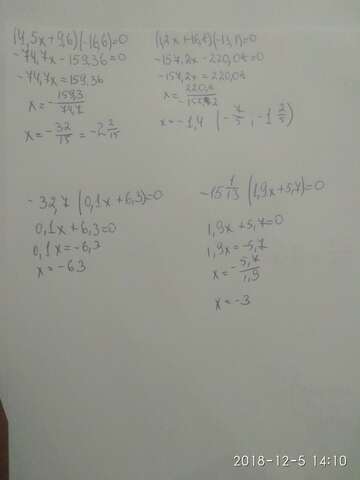 (4,5x+9,6)(-16,6)=0
-74,7x-159,36=0
-74,7x=159,36
x=-159,3/74,7
x=-32/15=-2 2/15
-157,2x-220,08=0
-157,2x=220,08
x=-1,4 (-7/5; -1 2/5)
-32,7(0,1x+6,3)=0
0,1x+6,3=0
0,1x=-6,3
x=-63
(1,9x+5,7)=0
1,9x+5,7=0
1,9x=-5,7
x=-5,7/1,9
x=-3
2018-12-5 14:10